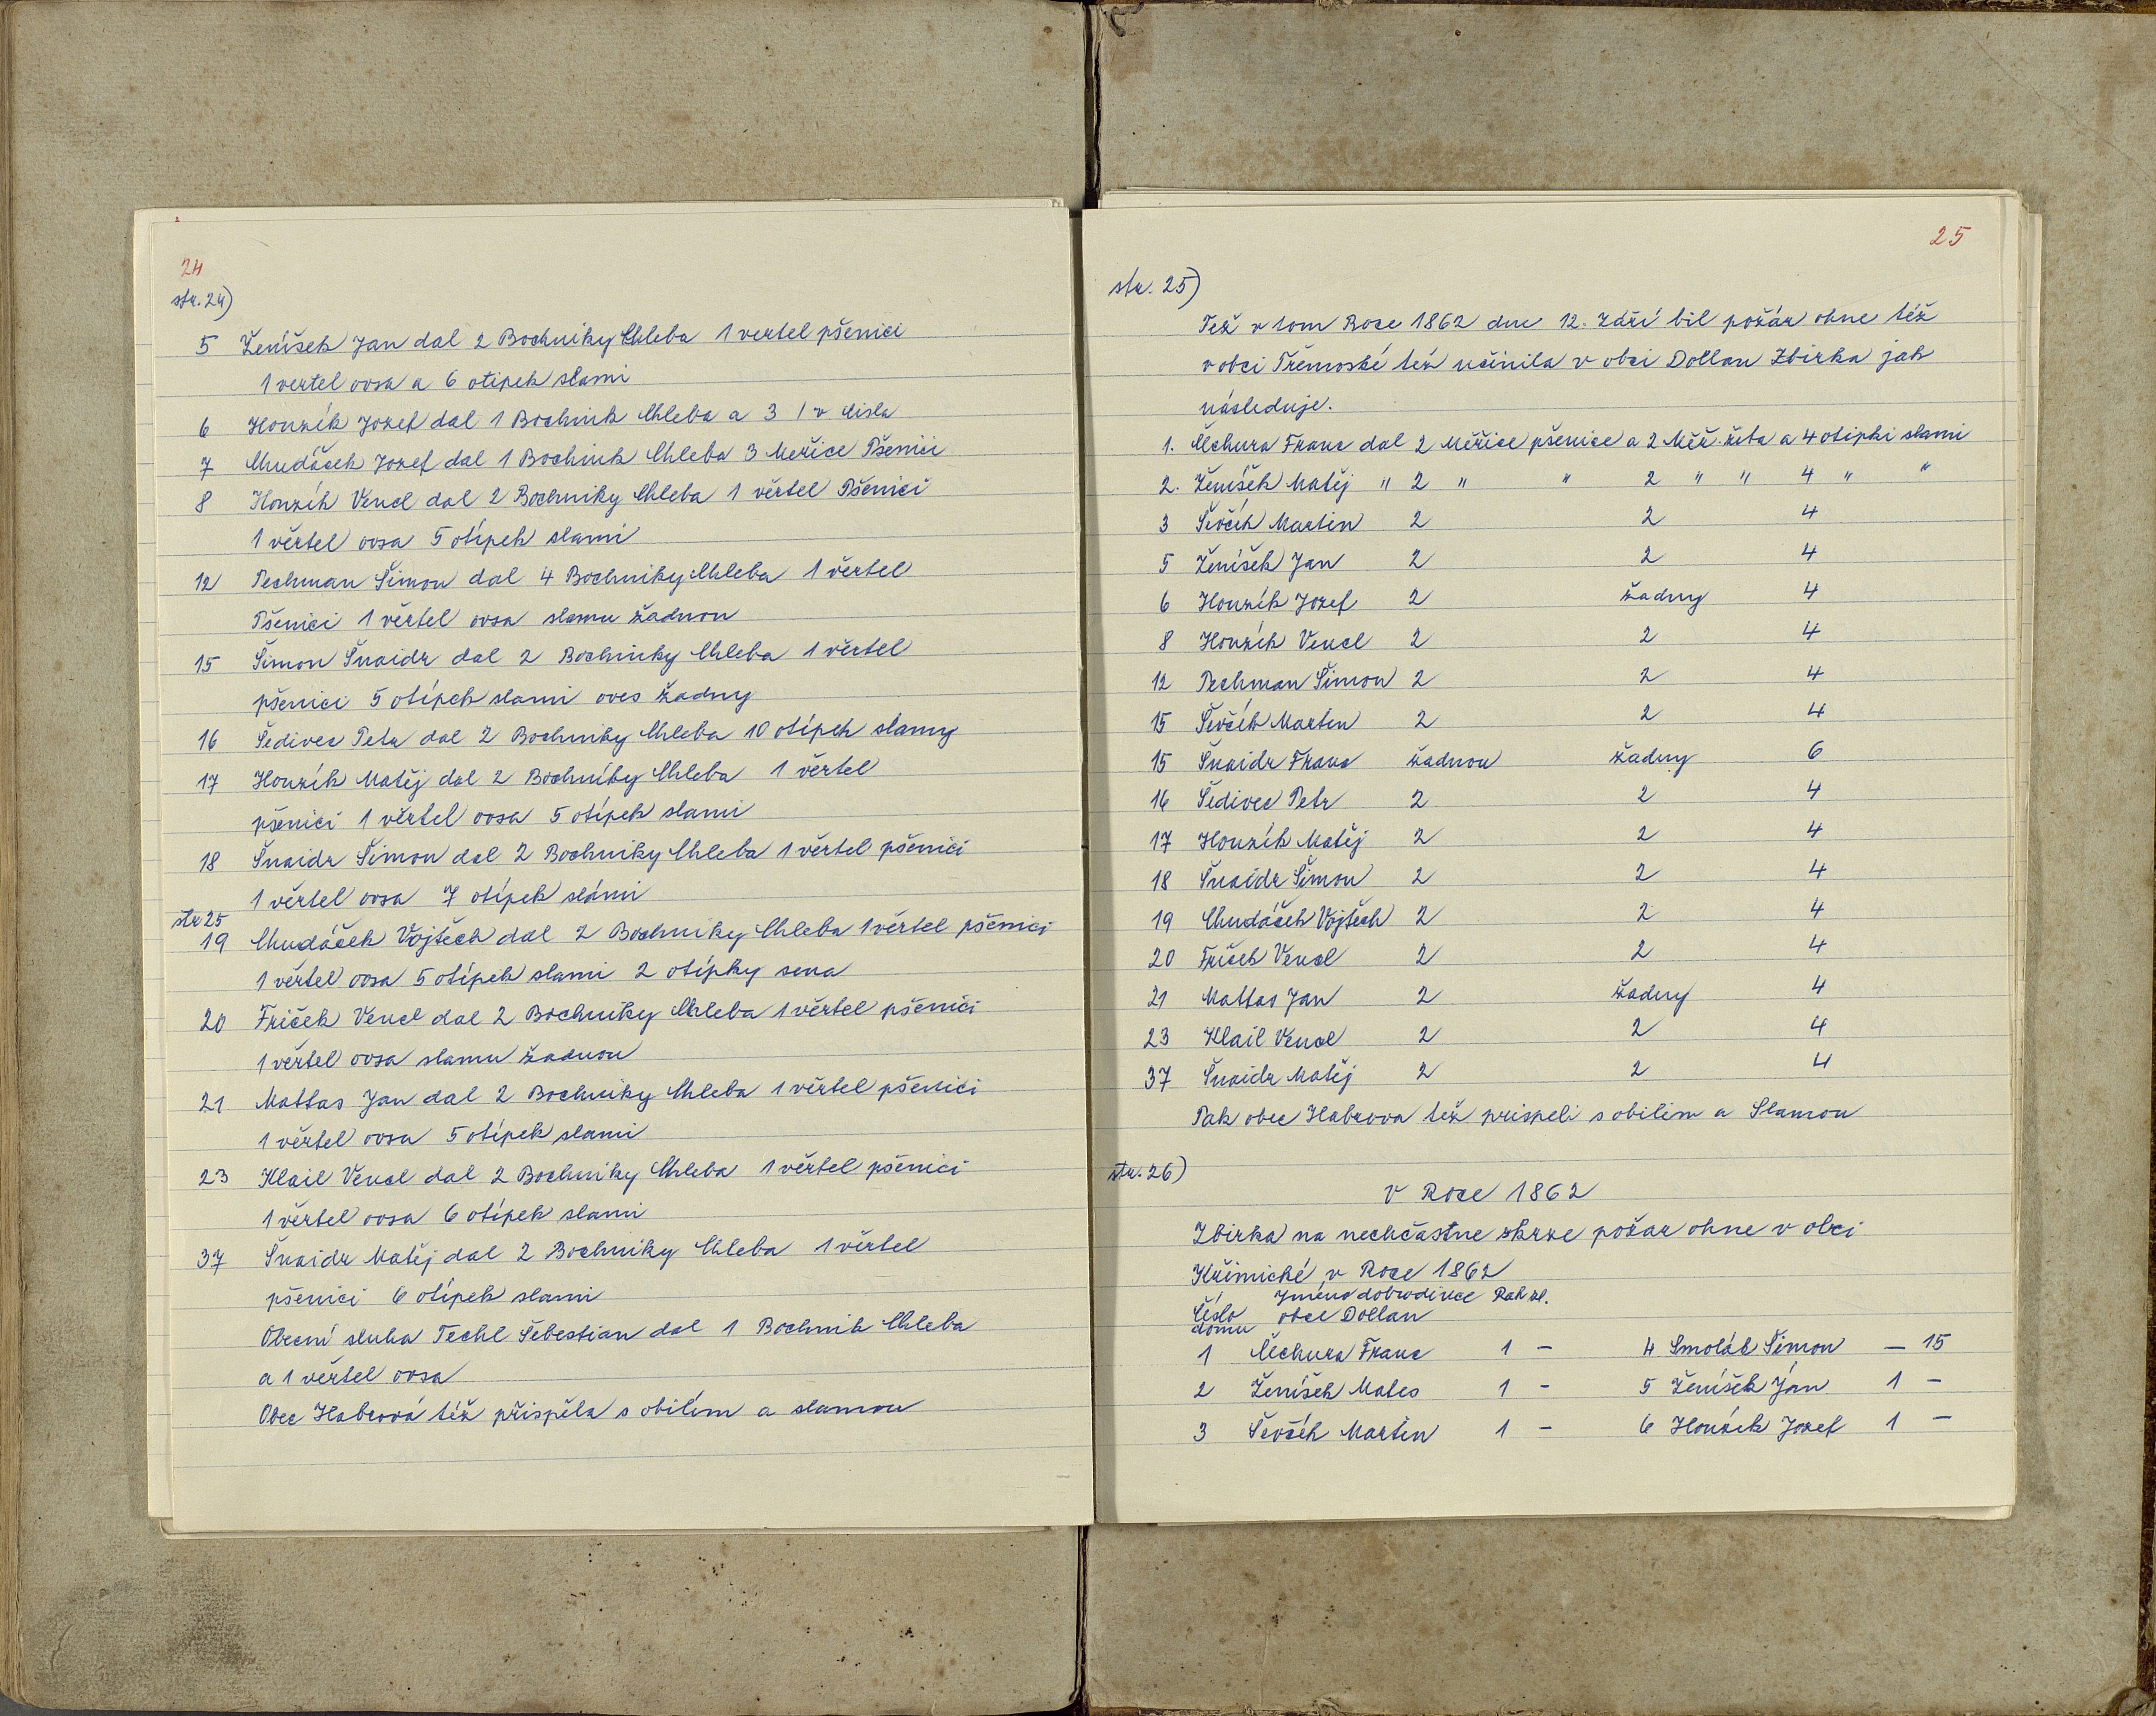 24
str. 24)
5 Ženíšek Jan dal 2 Bochniky Chleba 1 vertel pšenici
1 vertel ovsa a 6 otipek slami
6 Honzík Jozef dal 1 Bochnik Chleba a 3 / v čísla
7 Chudáček Jozef dal 1 Bochnik Chleba 3 Meřice Pšenici
8 Honzík Vencl dal 2 Bochniky Chleba 1 věrtel Pšenici
1 věrtel ovsa 5 otípek slami
12 Pechman Šimon dal 4 Bochniky Chleba 1 věrtel
Pšenici 1 věrtel ovsa slamu žadnou
15 Šimon Šnaidr dal 2 Bochniky Chleba 1 věrtel
pšenici 5 otípek slami oves žadny
16 Šedivec Petr dal 2 Bochniky Chleba 10 otípek slamy
17 Honzík Matěj dal 2 Bochníky Chleba 1 věrtel
pšenici 1 věrtel ovsa 5 otípek slami
18 Šnaidr Šimon dal 2 Bochniky Chleba 1 věrtel pšenici
1 věrtel ovsa 7 otípek slámi
str 25
19 Chudáček Vojtěch dal 2 Bochniky Chleba 1 věrtel pšenici
1 věrtel ovsa 5 otípek slami 2 otípky sena
20 Friček Vencl dal 2 Bochniky Chleba 1 věrtel pšenici
1 věrtel ovsa slamu žadnou
21 Mattas Jan dal 2 Bochniky Chleba 1 věrtel pšenici
1 věrtel ovsa 5 otípek slami
23 Klail Vencl dal 2 Bochniky Chleba 1 věrtel pšenici
1 věrtel ovsa 6 otípek slami
37 Šnaidr Matěj dal 2 Bochniky Chleba 1 věrtel
pšenici 6 otípek slami
Obecní sluha Techl Šebestian dal 1 Bochnik Chleba
a 1 věrtel ovsa
Obec Habrová též přispěla s obilím a slamou
25
str. 25)
Též v tom Roce 1862 dne 12. Září bil požár ohne též
v obci Třemoské též učinila v obci Dollan Zbirka jak
následuje.
1. Čechura Franc dal 2 Měřice pšenice a 2 Měř. žita a 4 otipki slami
2. Ženíšek Matěj " 2 " " 2 " " 4 " "
3 Ševčík Martin 2 2 4
5 Ženíšek Jan 2 2 4
6 Honzík Jozef 2 žadny 4
8 Honzík Vencl 2 2 4
12 Pechman Šimon 2 2 4
15 Ševčík Martin 2 2 4
15 Šnaidr Franc žadnou žadny 6
16 Šedivec Petr 2 2 4
17 Honzík Matěj 2 2 4
18 Šnaidr Šimon 2 2 4
19 Chudáček Vojtěch 2 2 4
20 Friček Vencl 2 2 4
21 Mattas Jan 2 žadny 4
23 Klail Vencl 2 2 4
37 Šnaidr Matěj 2 2 4
Pak obec Habrova též prispeli s obilim a Slamou
str. 26)
v Roce 1862
Zbirka na nechčastne skrze požar ohne v obci
Křimické v Roce 1862
Jméno dobrodince Rak zl.
Číslo obce Dollan
domu
1 Čechura Franc 1 – 4 Smoláb Šimon – 15
2 Ženíšek Mates 1 – 5 Ženíšek Ján 1 –
3 Ševčík Martin 1 – 6 Honzík Jozef 1 –